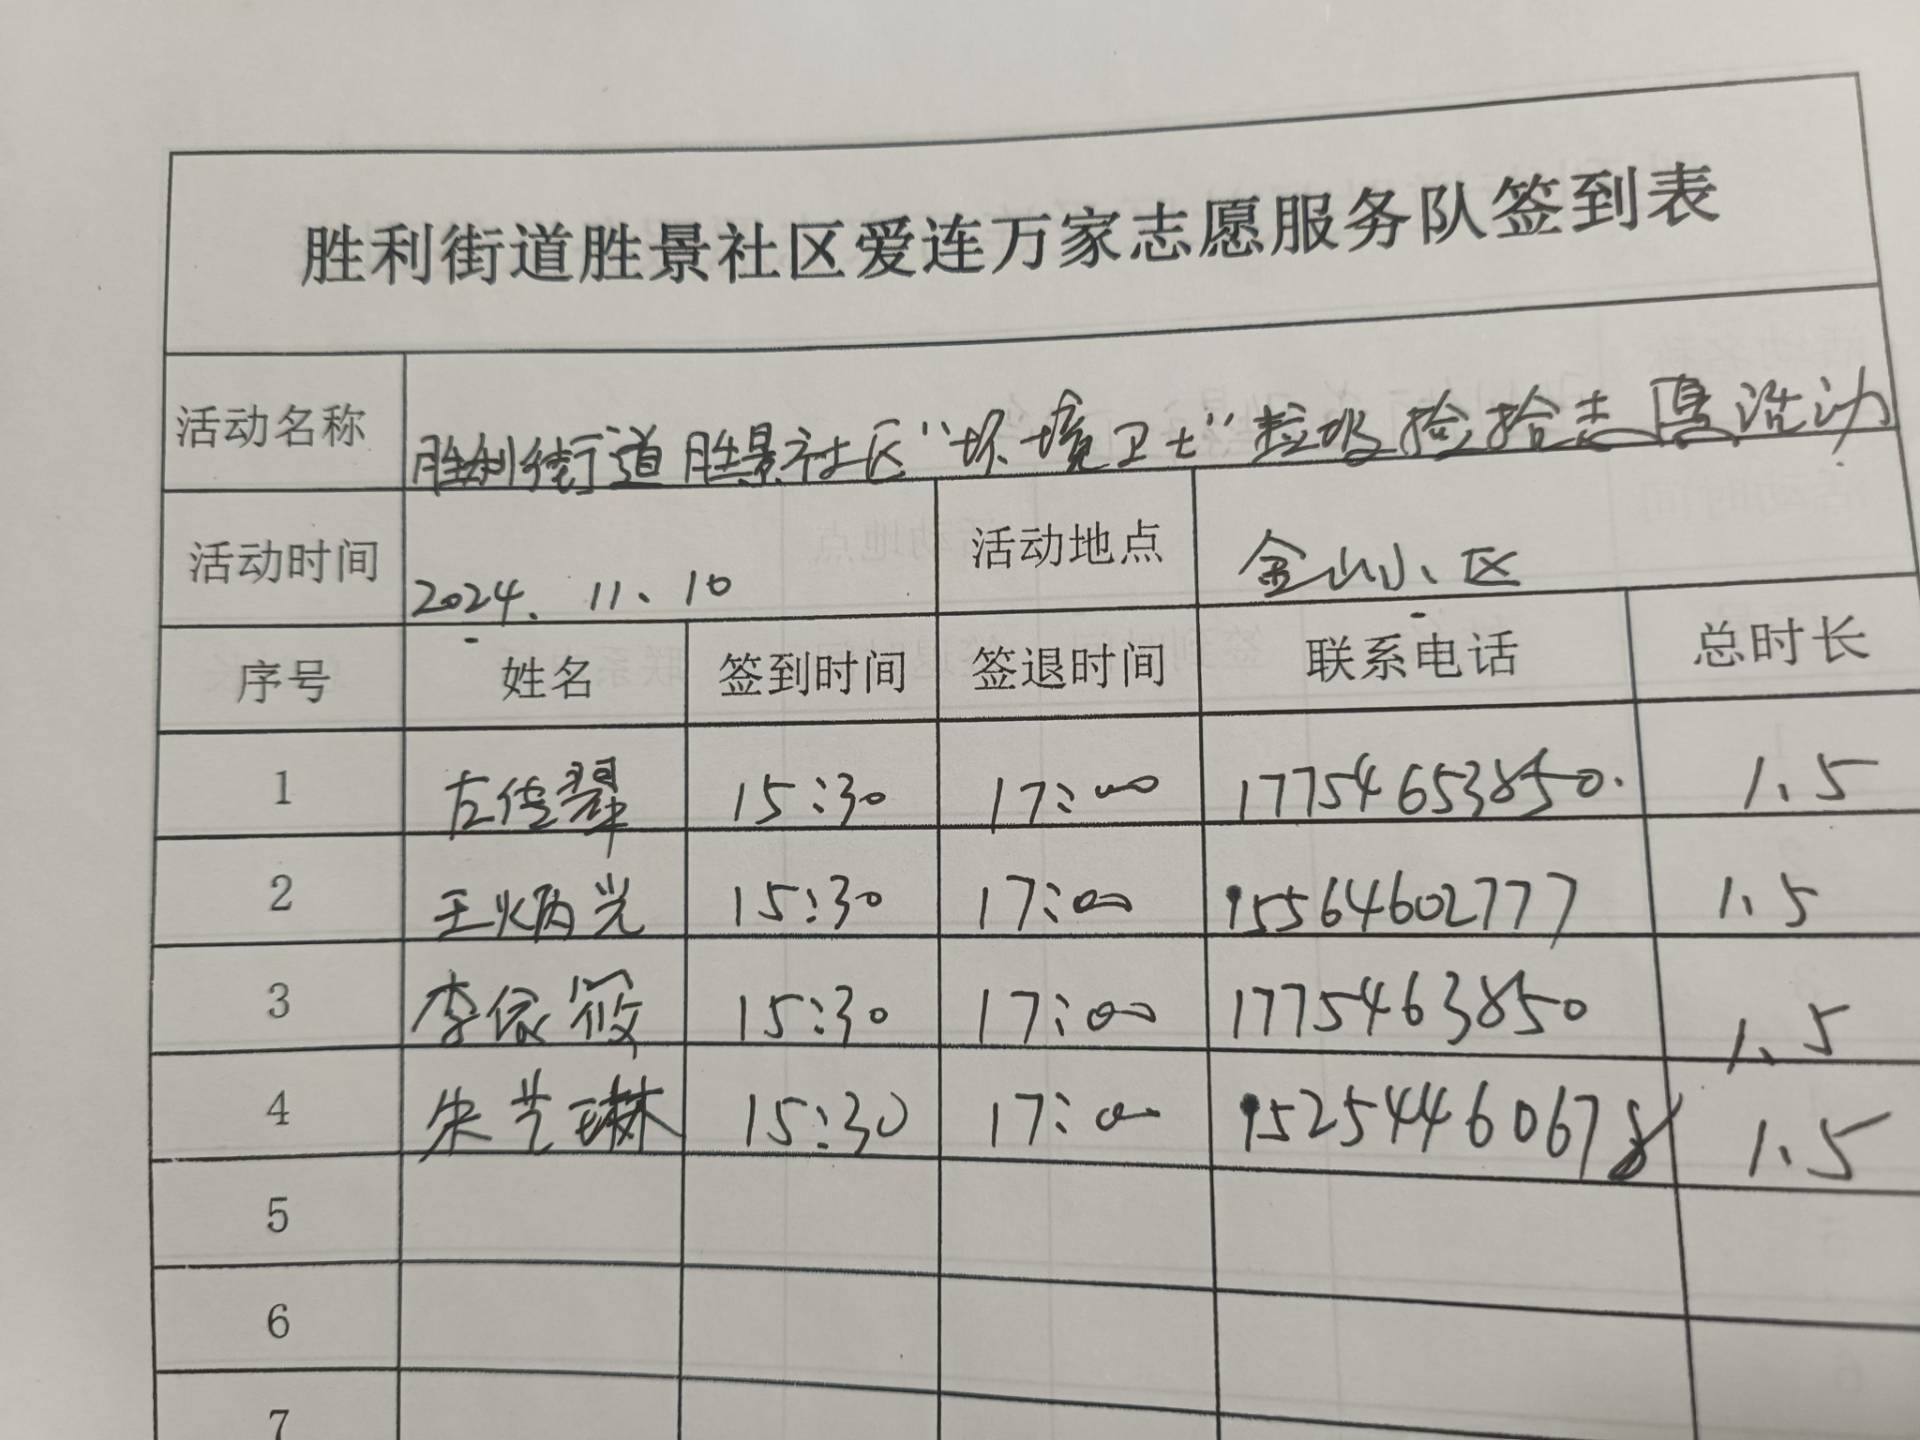 胜利街道胜景社区爱连万家志愿服务队签到表
活动名称 胜利街道胜景社区“环境卫士”垃圾捡拾志愿活动
活动时间 2024.11.10 活动地点 金山小区
序号 姓名 签到时间 签退时间 联系电话 总时长
1 左佳翠 15:30 17:00 17754653850. 1.5
2 王炳光 15:30 17:00 15564602777 1.5
3 李依筱 15:30 17:00 1775463850 1.5
4 朱艺琳 15:30 17:00 15254460678 1.5
5
6
7